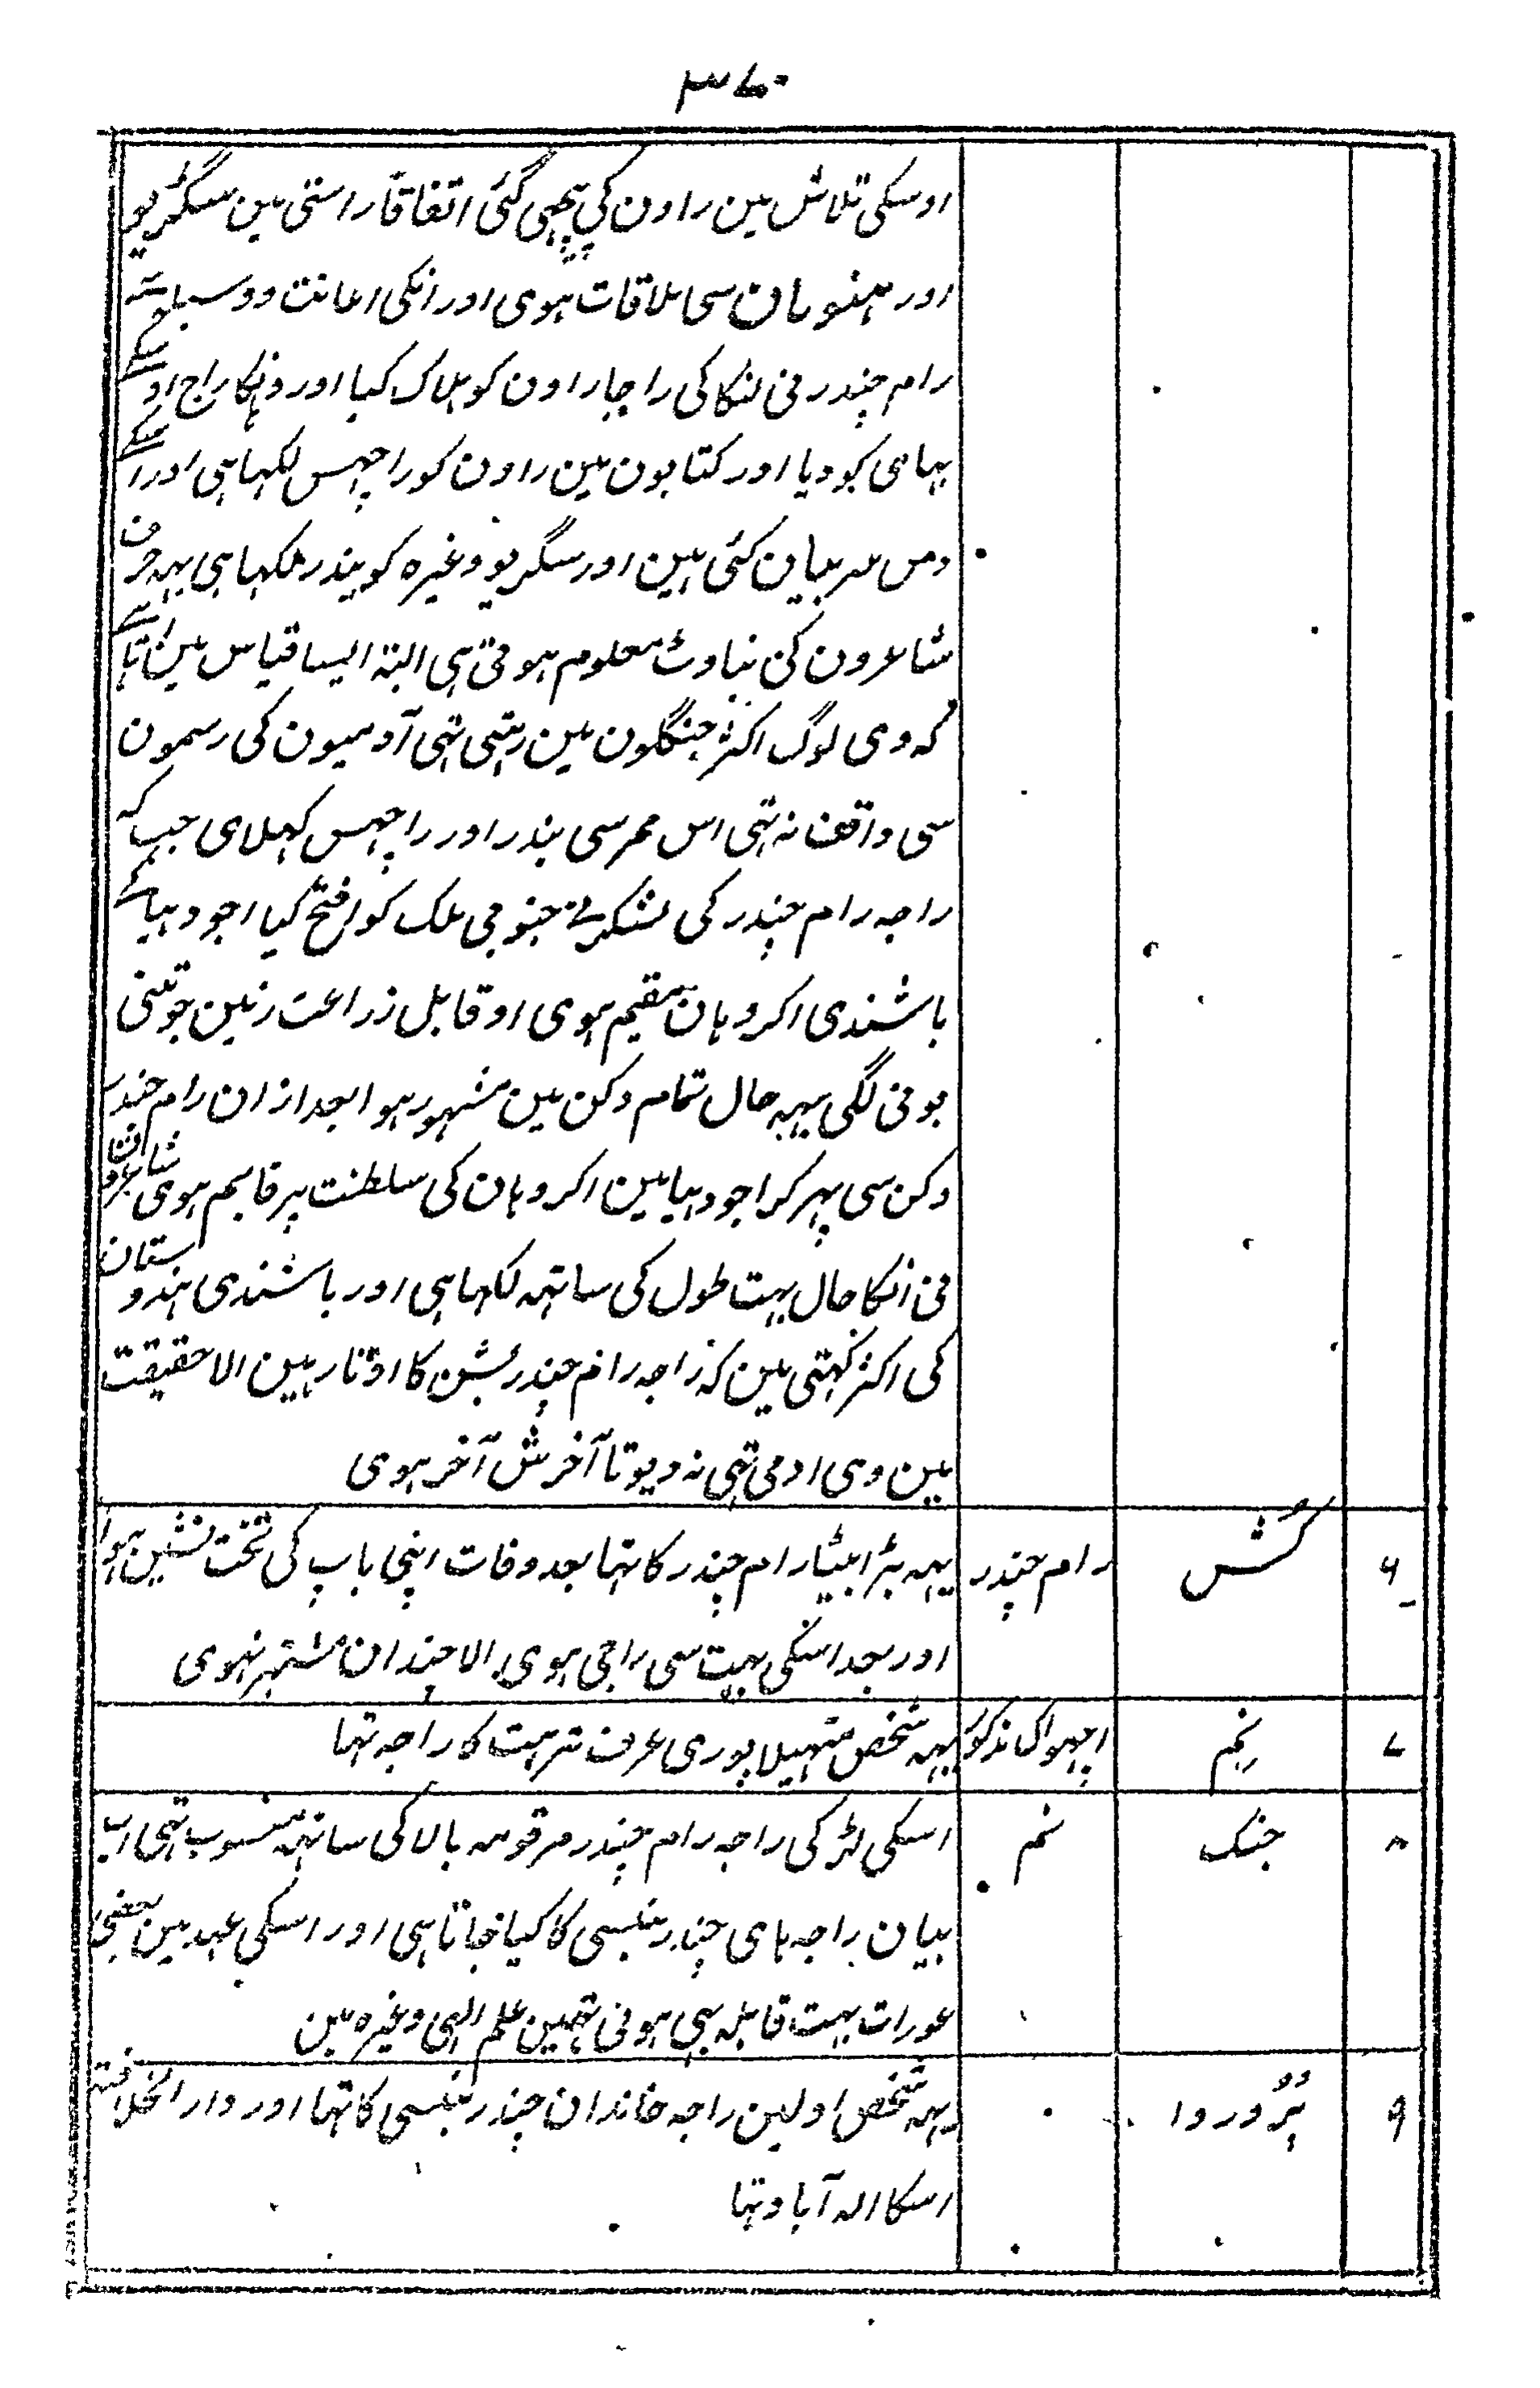 ۳۷۰
اوسکی تلاش مین راون کی پیچھی گئی اتفاقاً راستی مین سگریو
اور ہنومان سی ملاقات ہوی اور انکی اعانت و وسیلہ سے
رام چندر نی لنکا کی راجا راون کو ہلاک کیا اور وہانکا راج اوسکے
بہای کو دیا اور کتابون مین راون کو راچہس لکہا ہی اور اسکے
دس سر بیان کئی ہین اور سگریو وغیرہ کو بندر لکہا ہی یہہ صرف
شاعرون کی بناوٹ معلوم ہوتی ہی البتہ ایسا قیاس مین آتا ہے
کہ وی لوگ اکثر جنگلون مین رہتی تہی آدمیون کی رسمون
سی واقف نہ تہی اس ممر سی بندر اور راچہس کہلای جب کہ
راجہ رام چندر کی لشکر نے جنوبی ملک کو فتح کیا اجودہیا کے
باشندی اکر وہان مقیم ہوی او قابل زراعت زمین جوتنی
بونی لگی یہہ حال تمام دکن مین مشہور ہوا بعد ازان رام چندر
دکن سی پہر کر اجودہیا مین اکر وہان کی سلطنت پر قایم ہوی شاعرون
نی انکا حال بہت طول کی ساتہہ لکہا ہی اور باشندی ہندوستان
کی اکثر کہتی ہین کہ راجہ رام چندر بشن کا اوتار ہین الا حقیقت
مین وی ادمی تہی نہ دیوتا آخرش آخر ہوی
۶ کُش رام چندر یہہ بڑا بیٹا رام چندر کا تہا بعد وفات اپنی باپ کی تخت نشین ہوا
اور بعد اسکی بہت سی راجی ہوی الا چندان مشتہر نہوی
۷ نِم اچہواک مذکور یہہ شخص متہیلا پوری عرف ترہت کا راجہ تہا
۸ جنک نم اسکی لڑکی راجہ رام چندر مرقومہ بالا کی ساتہہ منسوب تہی اب
بیان راجہ ہای چندر بنسی کا کیا جاتا ہی اور اسکی عہد مین بعضی
عورات بہت قابلہ بہی ہوئی تہین علم الہی وغیرہ مین
۹ پُرُوروا یہہ شخص اولین راجہ خاندان چندر بنسی کا تہا اور دار الخلافتہ
اسکا الہ آباد تہا